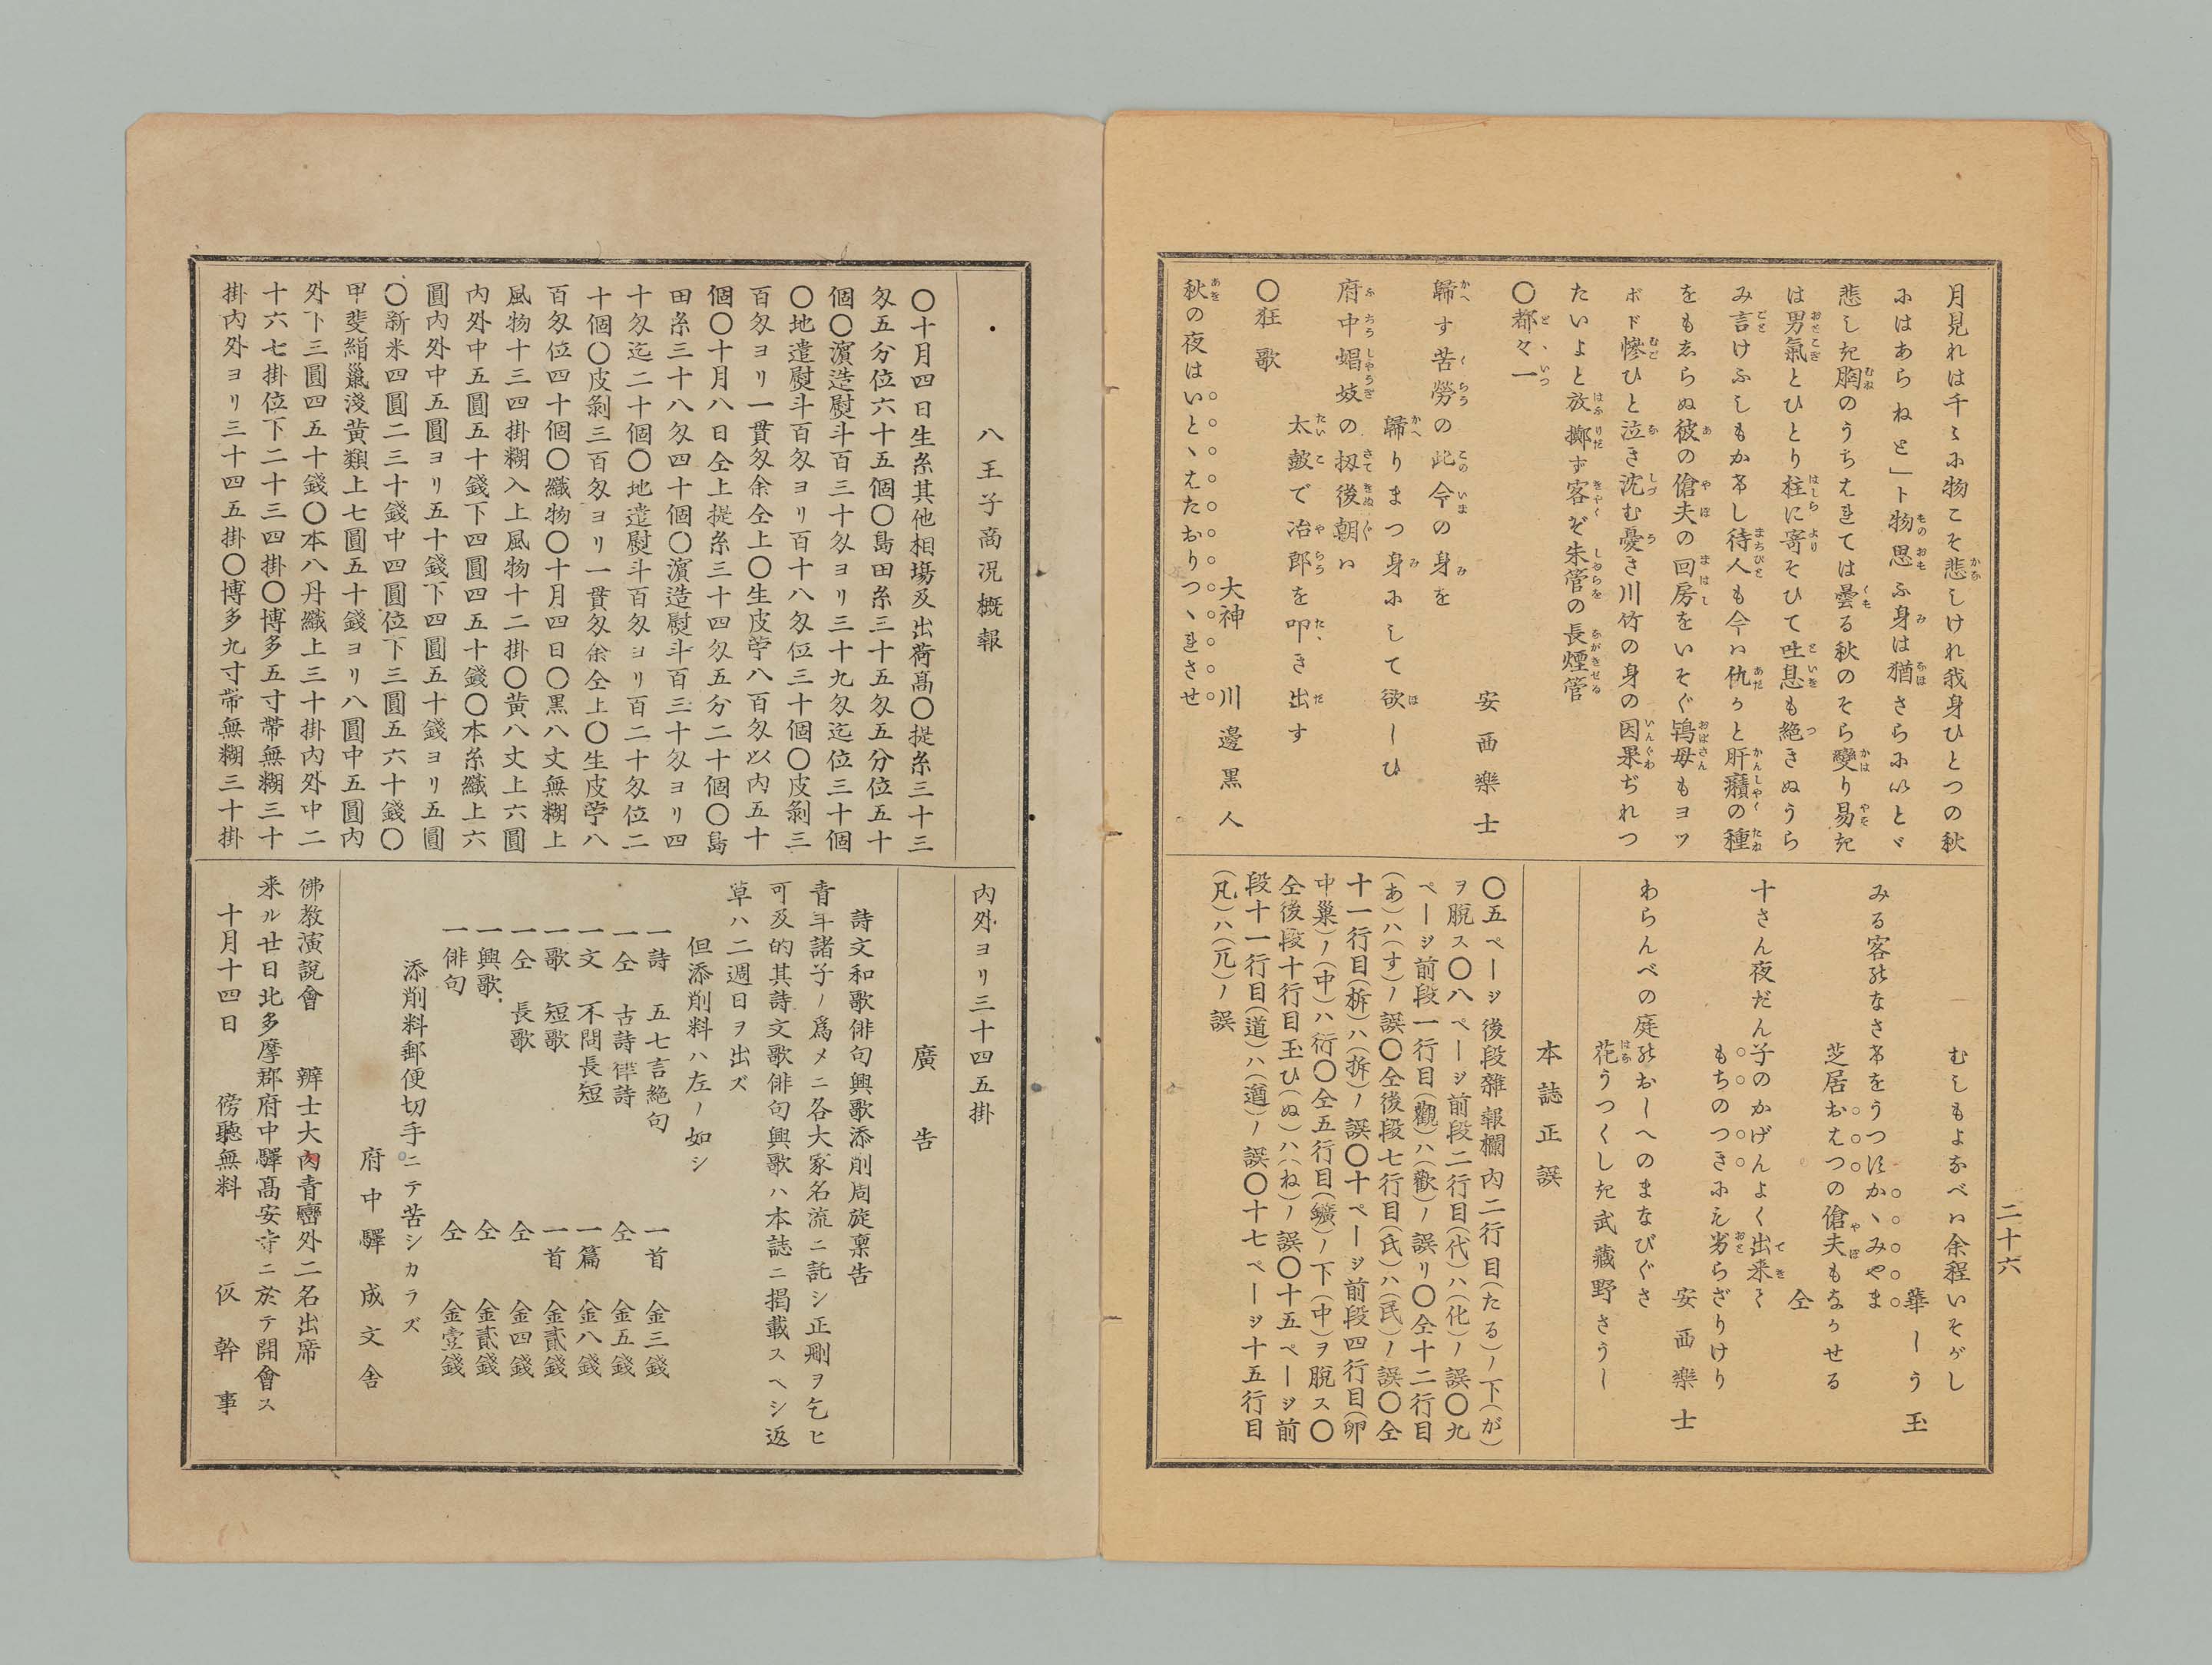 二十六
月見れは千々に物こそ悲しけれ我身ひとつの秋
にはあらねと」ト物思ふ身は猶さらにいとゞ
悲しき胸のうちはれては曇る秋のそら變り易き
は男氣とひとり柱に寄そひて吐息も絶きぬうら
み言けふしもか希し待人も今ハ仇かと肝癪の種
をもゑらぬ彼の傖夫の回房をいそぐ鴇母もヨツ
ポド慘ひと泣き沈む憂き川竹の身の因果ぢれつ
たいよと放擲ず客ぞ朱管の長煙管
〇都々一
安西樂士
歸す苦勞の此今の身を
歸りまつ身にして欲しひ
府中娼妓の扨後朝ハ
太皷で冶郎を叩き出す
〇狂歌
大神 川邊黒人
秋の夜はいとゝはたおりつゝれさせ
むしもよなべハ余程いそがし
華しう玉
みる客のなさけをうつすかゝみやま
芝居おはつの傖夫もなかせる
仝
十さん夜だん子のかげんよく出来て
もちのつきにも劣らざりけり
安西樂士
わらんべの庭のおしへのまなびぐさ
花うつくしき武藏野さうし
本誌正誤
〇五ページ後段雜報欄内二行目(たる)ノ下(が)
ヲ脱ス〇八ページ前段二行目(代)ハ(化)ノ誤〇九
ページ前段一行目(觀)ハ(歡)ノ誤リ〇仝十二行目
(あ)ハ(す)ノ誤〇仝後段七行目(氏)ハ(民)ノ誤〇仝
十一行目(柝)ハ(拆)ノ誤〇十ページ前段四行目(卯
中巢)ノ(中)ハ衍〇仝五行目(鑛)ノ下(中)ヲ脱ス〇
仝後段十行目玉ひ(ぬ)ハ(ね)ノ誤〇十五ページ前
段十一行目(道)ハ(遒)ノ誤〇十七ページ十五行目
(凡)ハ(兀)ノ誤
八王子商况概報
〇十月四日生糸其他相塲及出荷髙〇提糸三十三
匁五分位六十五個〇島田糸三十五匁五分位五十
個〇濱造熨斗百三十匁ヨリ三十九匁迄位三十個
〇地遣熨斗百匁ヨリ百十八匁位三十個〇皮剝三
百匁ヨリ一貫匁余仝上〇生皮苧八百匁以内五十
個〇十月八日仝上提糸三十四匁五分二十個〇島
田糸三十八匁四十個〇濱造熨斗百三十匁ヨリ四
十匁迄二十個〇地遣熨斗百匁ヨリ百二十匁位二
十個〇皮剝三百匁ヨリ一貫匁余仝上〇生皮苧八
百匁位四十個〇織物〇十月四日〇黒八丈無糊上
風物十三四掛糊入上風物十二掛〇黃八丈上六圓
内外中五圓五十錢下四圓四五十錢〇本糸織上六
圓内外中五圓ヨリ五十錢下四圓五十錢ヨリ五圓
〇新米四圓二三十錢中四圓位下三圓五六十錢〇
甲斐絹鼠淺黃類上七圓五十錢ヨリ八圓中五圓内
外下三圓四五十錢〇本八丹織上三十掛内外中二
十六七掛位下二十三四掛〇博多五寸帶無糊三十
掛内外ヨリ三十四五掛〇博多九寸帶無糊三十掛
内外ヨリ三十四五掛
廣告
詩文和歌俳句興歌添削周旋稟告
青年諸子ノ爲メニ各大家名流ニ託シ正刪ヲ乞ヒ
可及的其詩文歌俳句興歌ハ本誌ニ掲載スヘシ返
草ハ二週日ヲ出ズ
但添削料ハ左ノ如シ
一詩 五七言絶句 一首 金三錢
一仝 古詩律詩 仝 金五錢
一文 不問長短 一篇 金八錢
一歌 短歌 一首 金貳錢
一仝 長歌 仝 金四錢
一興歌 仝 金貳錢
一俳句 仝 金壹錢
添削料郵便切手ニテ苦シカラズ
府中驛 成文舎
佛教演說會 辨士大内青巒外二名出席
来ル廿日北多摩郡府中驛髙安寺ニ於テ開會ス
十月十四日 傍聽無料 仮幹事